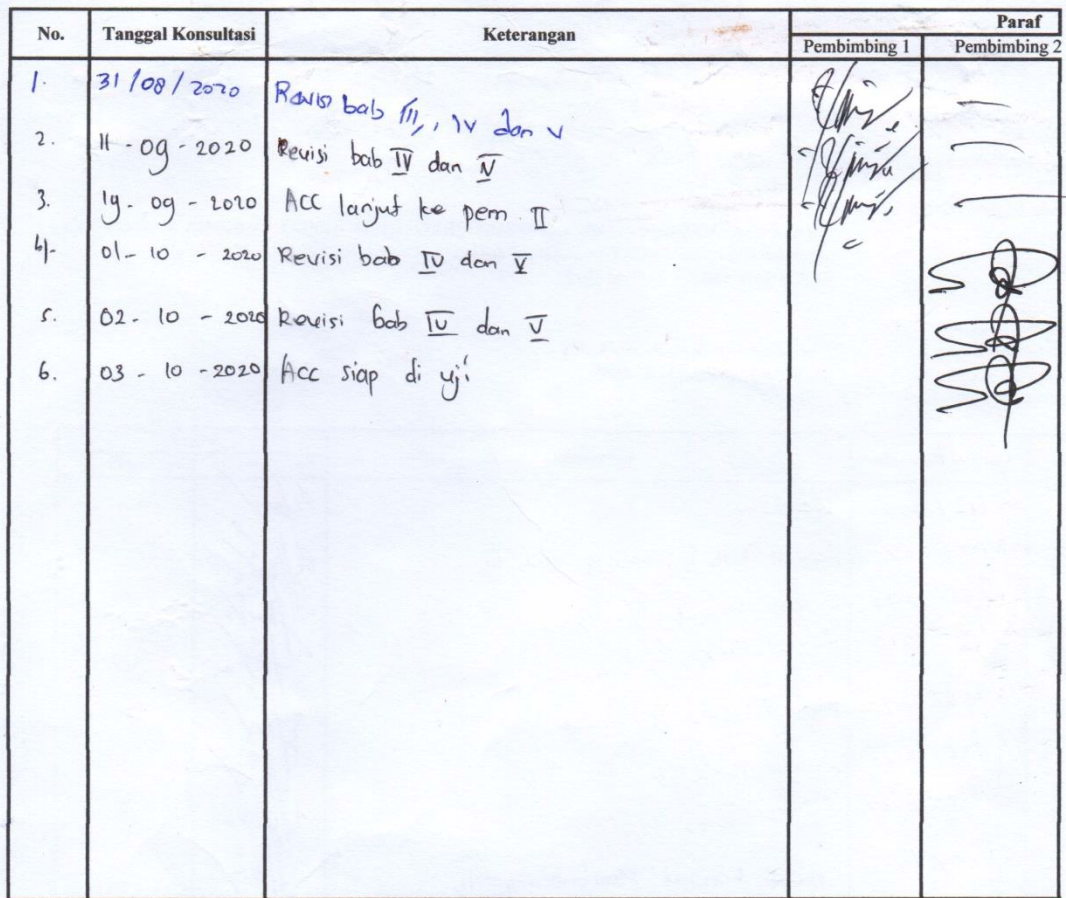 No. Tanggal Konsultasi Keterangan Paraf
Pembimbing 1 Pembimbing 2
1. 31/08/2020 Revisi bab III, IV dan V
2. 11-09-2020 Revisi bab IV dan V
3. 19-09-2020 ACC lanjut ke pem II
4. 01-10-2020 Revisi bab IV dan V
5. 02-10-2020 Revisi bab IV dan V
6. 03-10-2020 Acc siap di uji